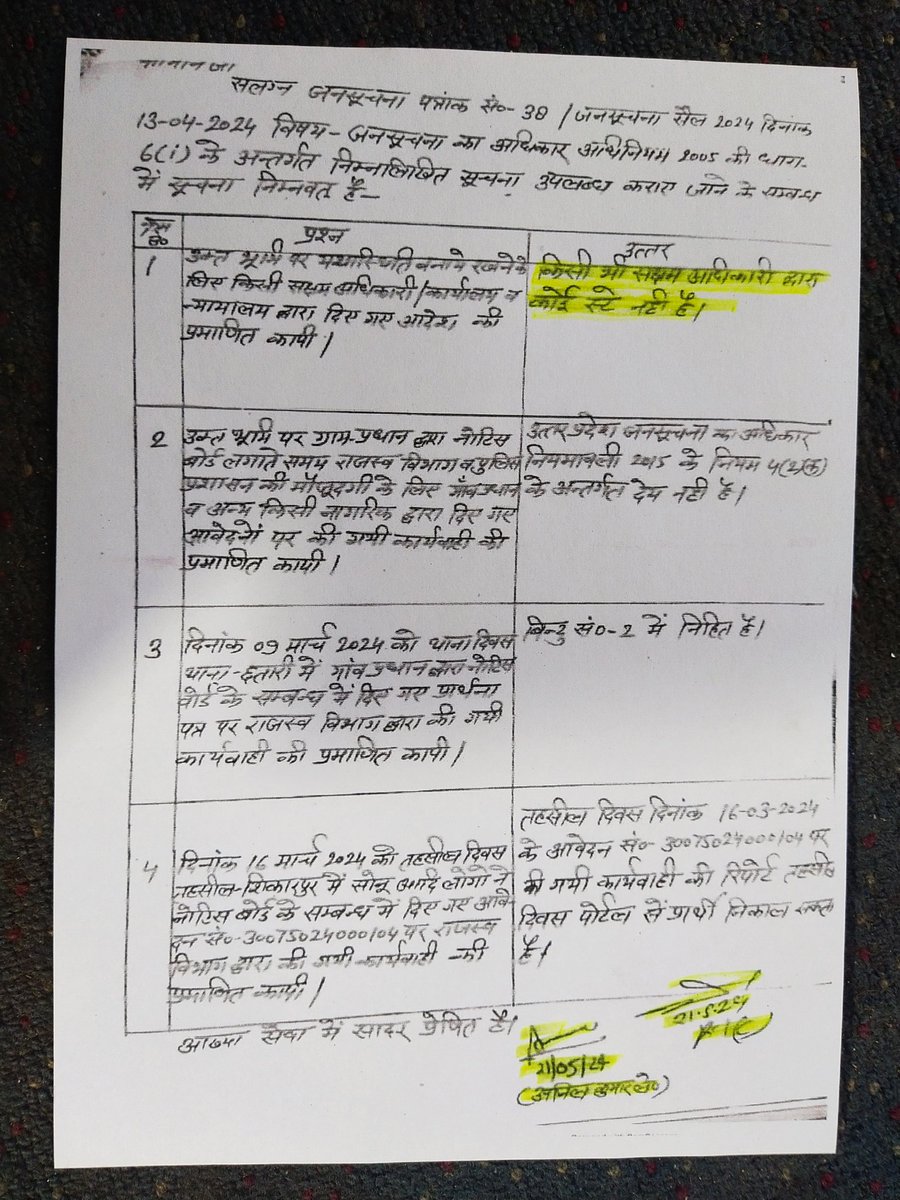 श्रीमान जी
सलग्न जनसूचना पत्रांक सं०- 38 / जनसूचना सैल 2024 दिनांक
13-04-2024 विषय- जनसूचना का अधिकार अधिनियम 2005 की धारा-
6(i) के अन्तर्गत निम्नलिखित सूचना उपलब्ध कराए जाने के सम्बन्ध
में सूचना निम्नवत् है-
क्रम सं०
प्रश्न
उत्तर
1
उक्त भूमि पर यथास्थिति बनाये रखने के
लिए किसी सक्षम अधिकारी/कार्यालय व
न्यायालय द्वारा दिए गए आदेश की
प्रमाणित कापी।
किसी भी सक्षम अधिकारी द्वारा
कोई स्टे नहीं है।
2
उक्त भूमि पर ग्राम-प्रधान द्वारा नोटिस
बोर्ड लगाते समय राजस्व विभाग व पुलिस
प्रशासन की मौजूदगी के लिए गाँव प्रधान
व अन्य किसी नागरिक द्वारा दिए गए
आवेदनों पर की गयी कार्यवाही की
प्रमाणित कापी।
उत्तर-प्रदेश जनसूचना का अधिकार
नियमावली 2015 के नियम 4(2)(क)
के अन्तर्गत देय नही है।
3
दिनांक 09 मार्च 2024 को थाना दिवस
थाना-छतारी में गांव प्रधान द्वारा नोटिस
बोर्ड के सम्बन्ध में दिए गए प्रार्थना
पत्र पर राजस्व विभाग द्वारा की गयी
कार्यवाही की प्रमाणित कापी।
बिन्दु सं०-2 में निहित है।
4
दिनांक 16 मार्च 2024 को तहसील दिवस
तहसील-शिकारपुर में सोनू आदि लोगो ने
नोटिस बोर्ड के सम्बन्ध में दिए गए आवे-
दन सं०-30075024000104 पर राजस्व
विभाग द्वारा की गयी कार्यवाही की
प्रमाणित कापी।
तहसील दिवस दिनांक 16-03-2024
के आवेदन सं०-30075024000104 पर
की गयी कार्यवाही की रिपोर्ट तहसील
दिवस पोर्टल से प्रार्थी निकाल सकता
है।
आख्या सेवा में सादर प्रेषित है।
21.5.24
21/05/24
(अनिल कुमार ले०)